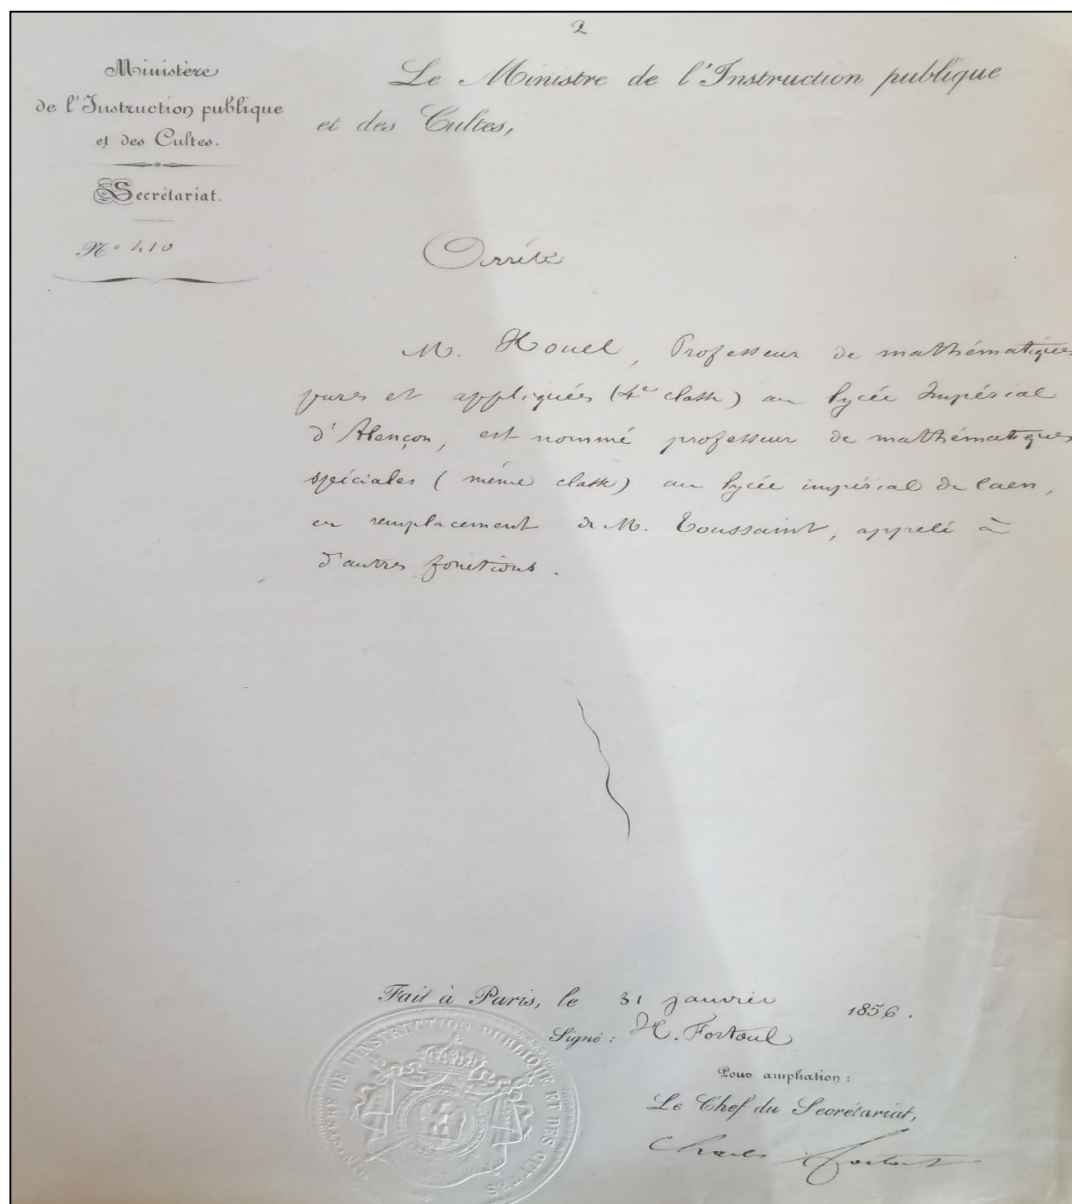 2
Ministère
de l'Instruction publique
et des Cultes.
Secrétariat.
N° 410
Le Ministre de l'Instruction publique
et des Cultes,
Arrête
M. Hoüel, Professeur de mathématiques
pures et appliquées (4e classe) au lycée Impérial
d'Alençon, est nommé professeur de mathématiques
spéciales (même classe) au lycée impérial de Caen,
en remplacement de M. Toussaint, appelé à
d'autres fonctions.
Fait à Paris, le 31 janvier 1856.
Signé : H. Fortoul
Pour ampliation :
Le Chef du Secrétariat,
Charles Fortoul
MINISTÈRE DE L'INSTRUCTION PUBLIQUE ET DES CULTES